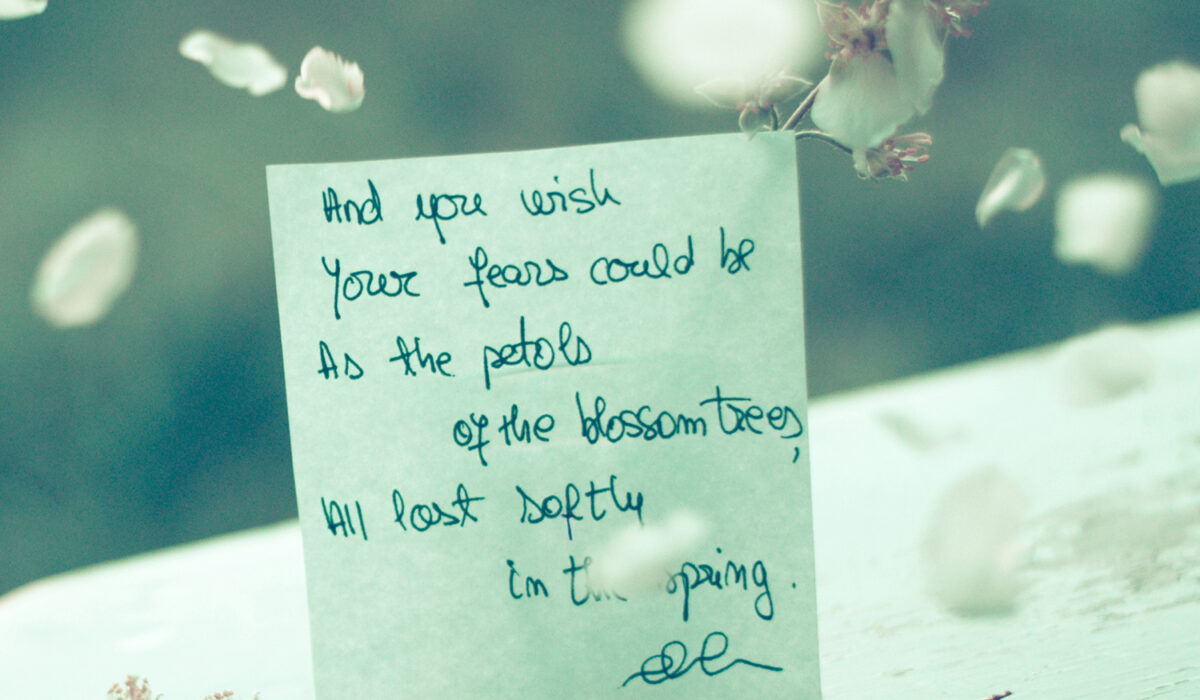 And you wish
Your fears could be
As the petals
of the blossom trees,
All lost softly
in the spring.